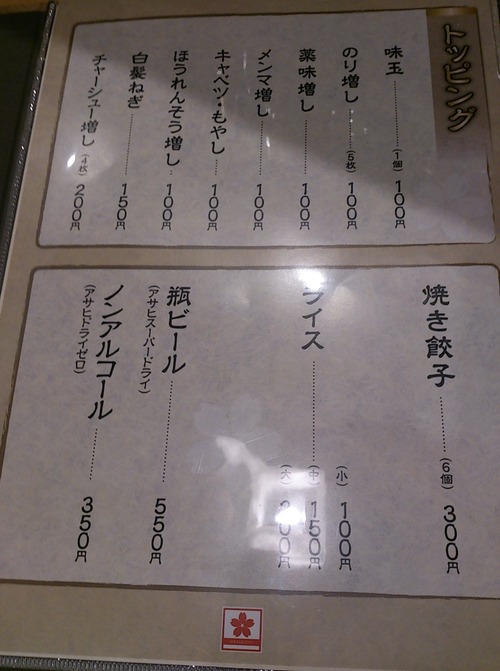 トッピング
味玉 (1個) 100円
のり増し (5枚) 100円
薬味増し 100円
メンマ増し 100円
キャベツ・もやし 100円
ほうれんそう増し 100円
白髪ねぎ 150円
チャーシュー増し (4枚) 200円
焼き餃子 (6個) 300円
ライス (小) 100円
(中) 150円
(大) 200円
瓶ビール 550円
(アサヒスーパードライ)
ノンアルコール 350円
(アサヒドライゼロ)